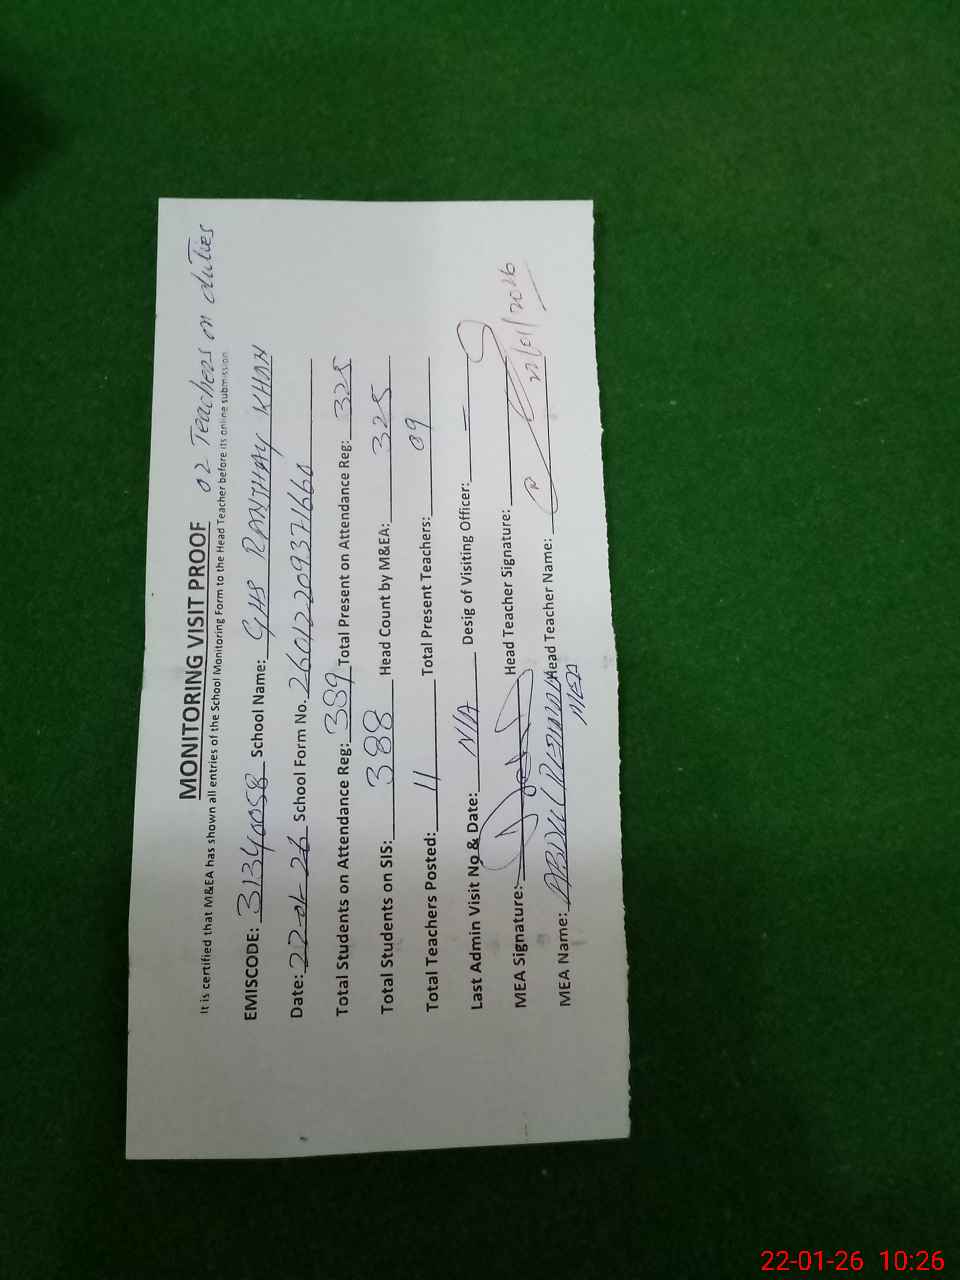 02 Teachers on duties
MONITORING VISIT PROOF
It is certified that M&EA has shown all entries of the School Monitoring Form to the Head Teacher before its online submission.
EMISCODE: 31340058 School Name: GHS RANJHAY KHAN
Date: 22-01-26 School Form No. 260122093716660
Total Students on Attendance Reg: 389 Total Present on Attendance Reg: 325
Total Students on SIS: 388 Head Count by M&EA: 325
Total Teachers Posted: 11 Total Present Teachers: 09
Last Admin Visit No & Date: N/A Desig of Visiting Officer: =
MEA Signature: Head Teacher Signature:
MEA Name: ABDUL REHMAN Head Teacher Name: 22/01/2026
MEA
22-01-26 10:26